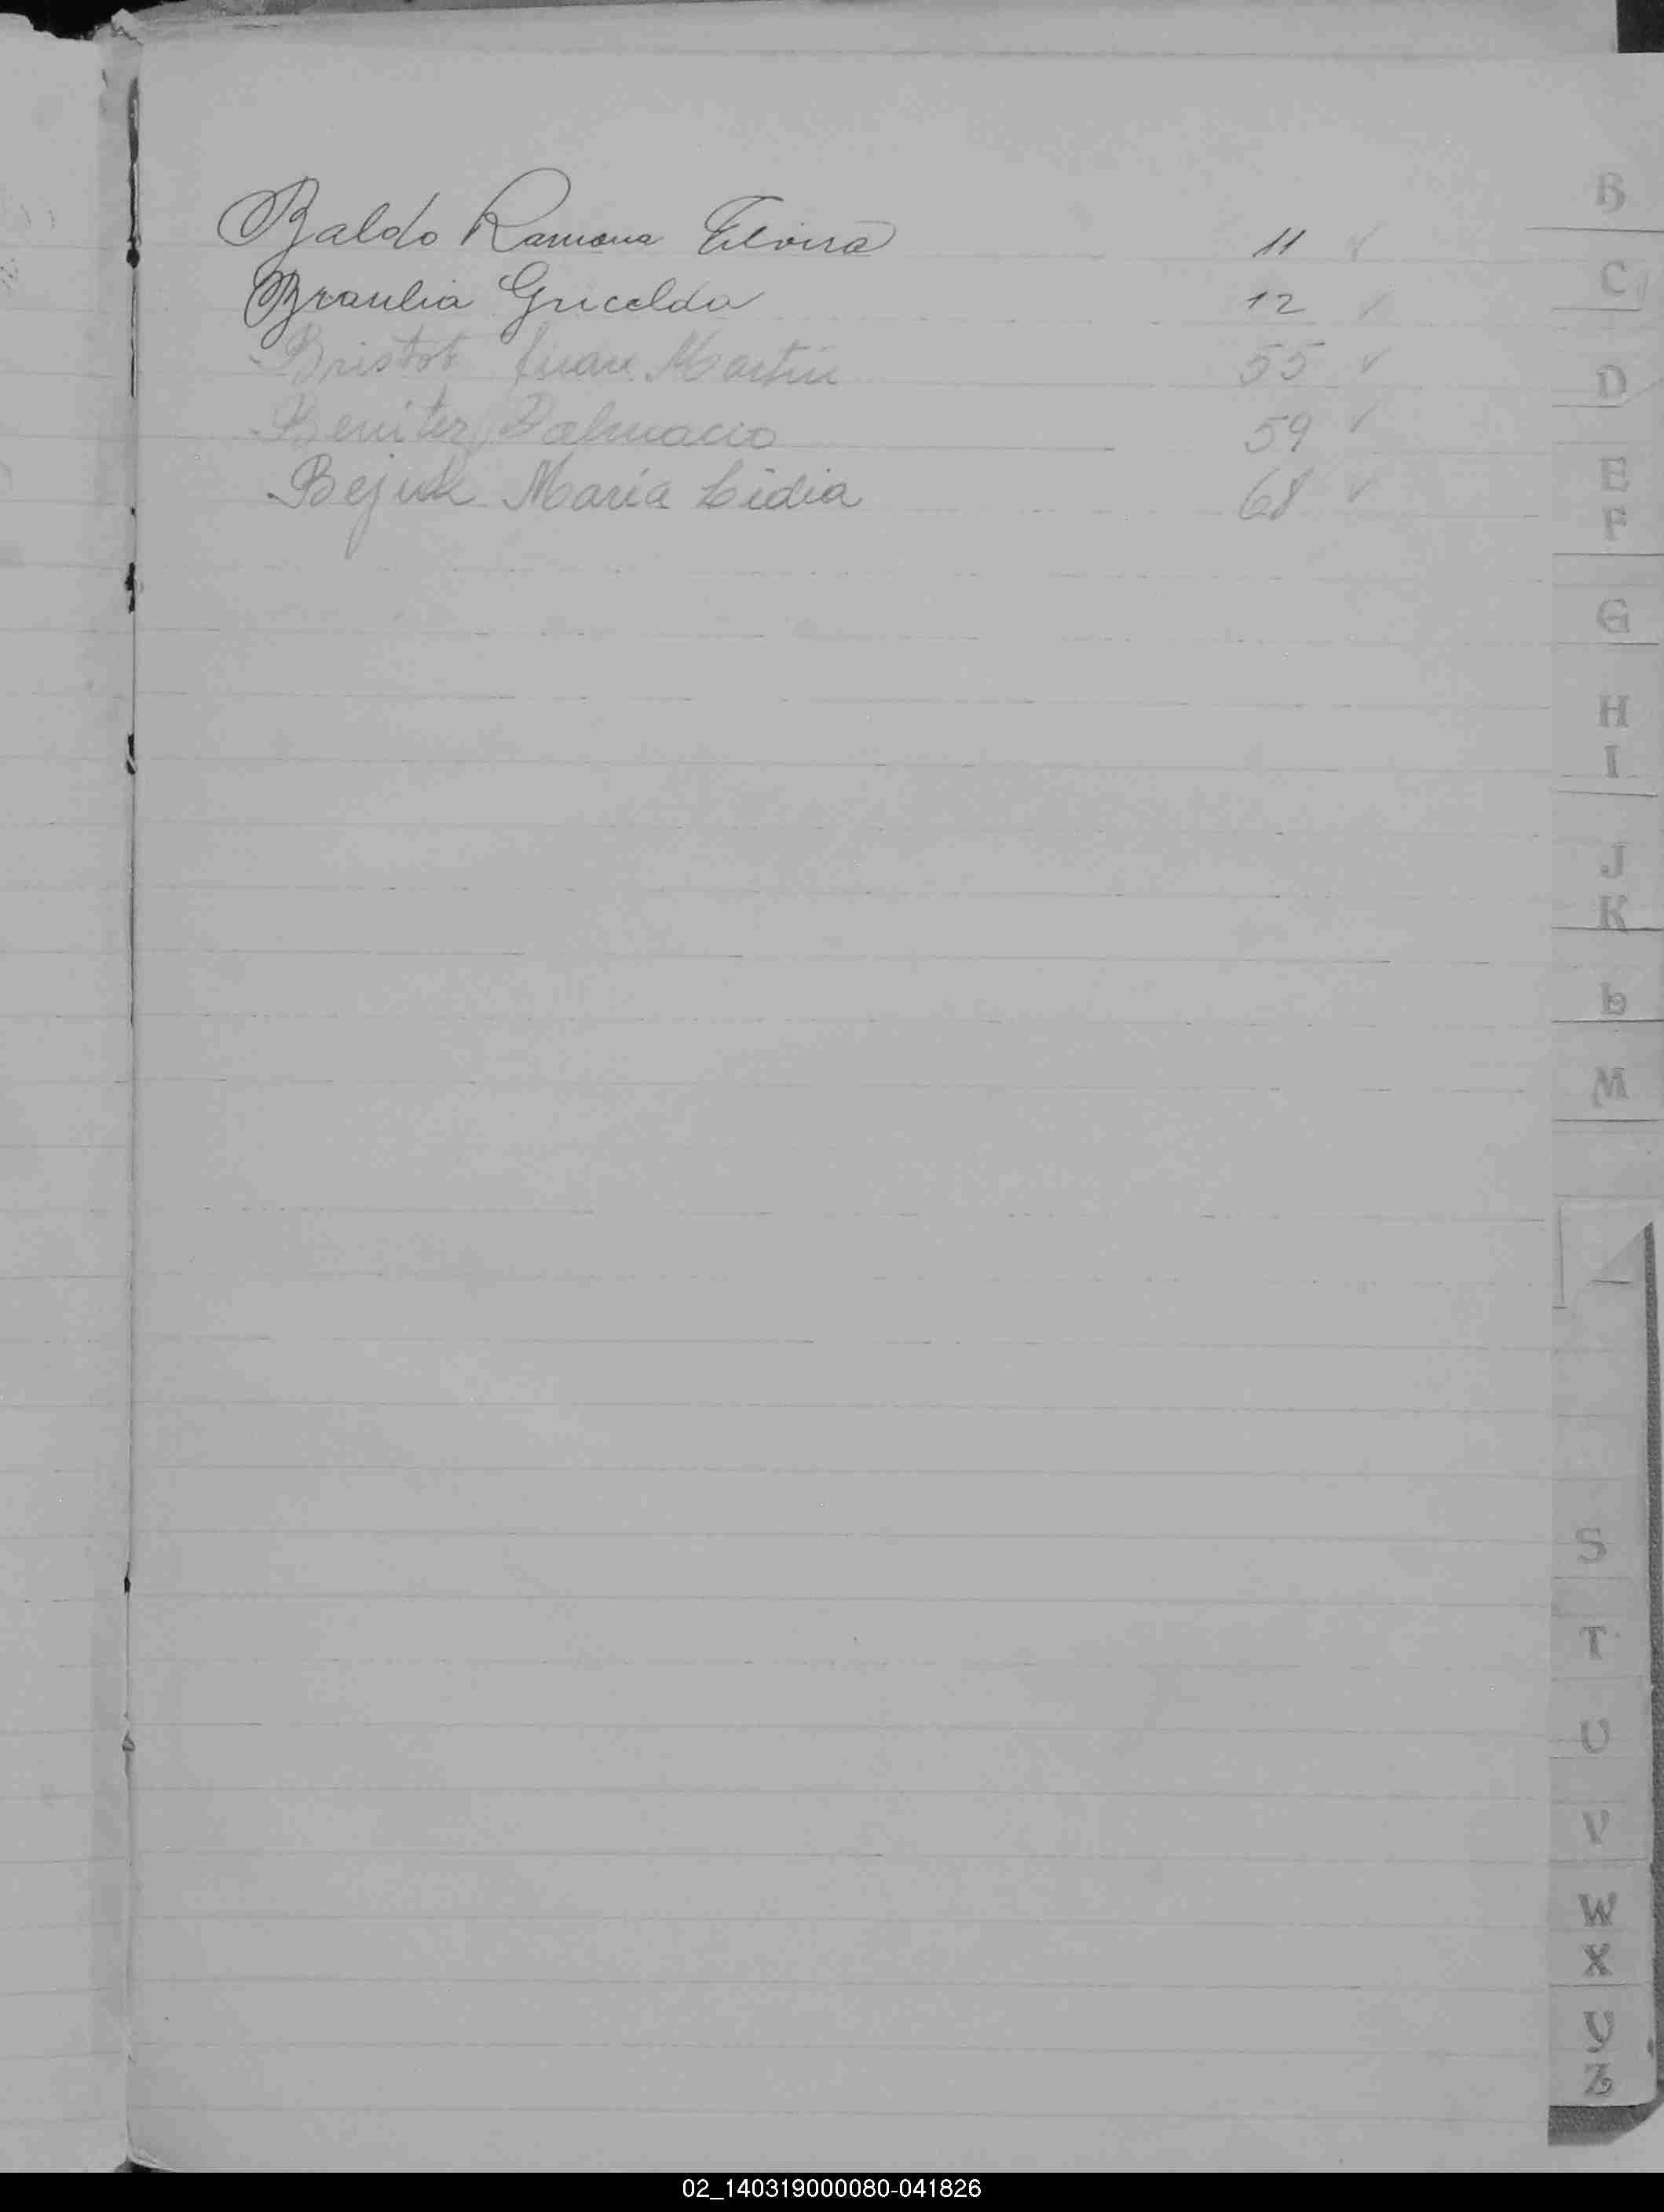 Baldo Ramona Elvira 11 ✓
Braulia Gricelda 12 ✓
Bristot Juan Martin 55 ✓
Benitez Dalmacio 59 ✓
Bejuk Maria Lidia 68 ✓
B
C
D
E
F
G
H
I
J
K
L
M
S
T
U
V
W
X
Y
Z
02_140319000080-041826